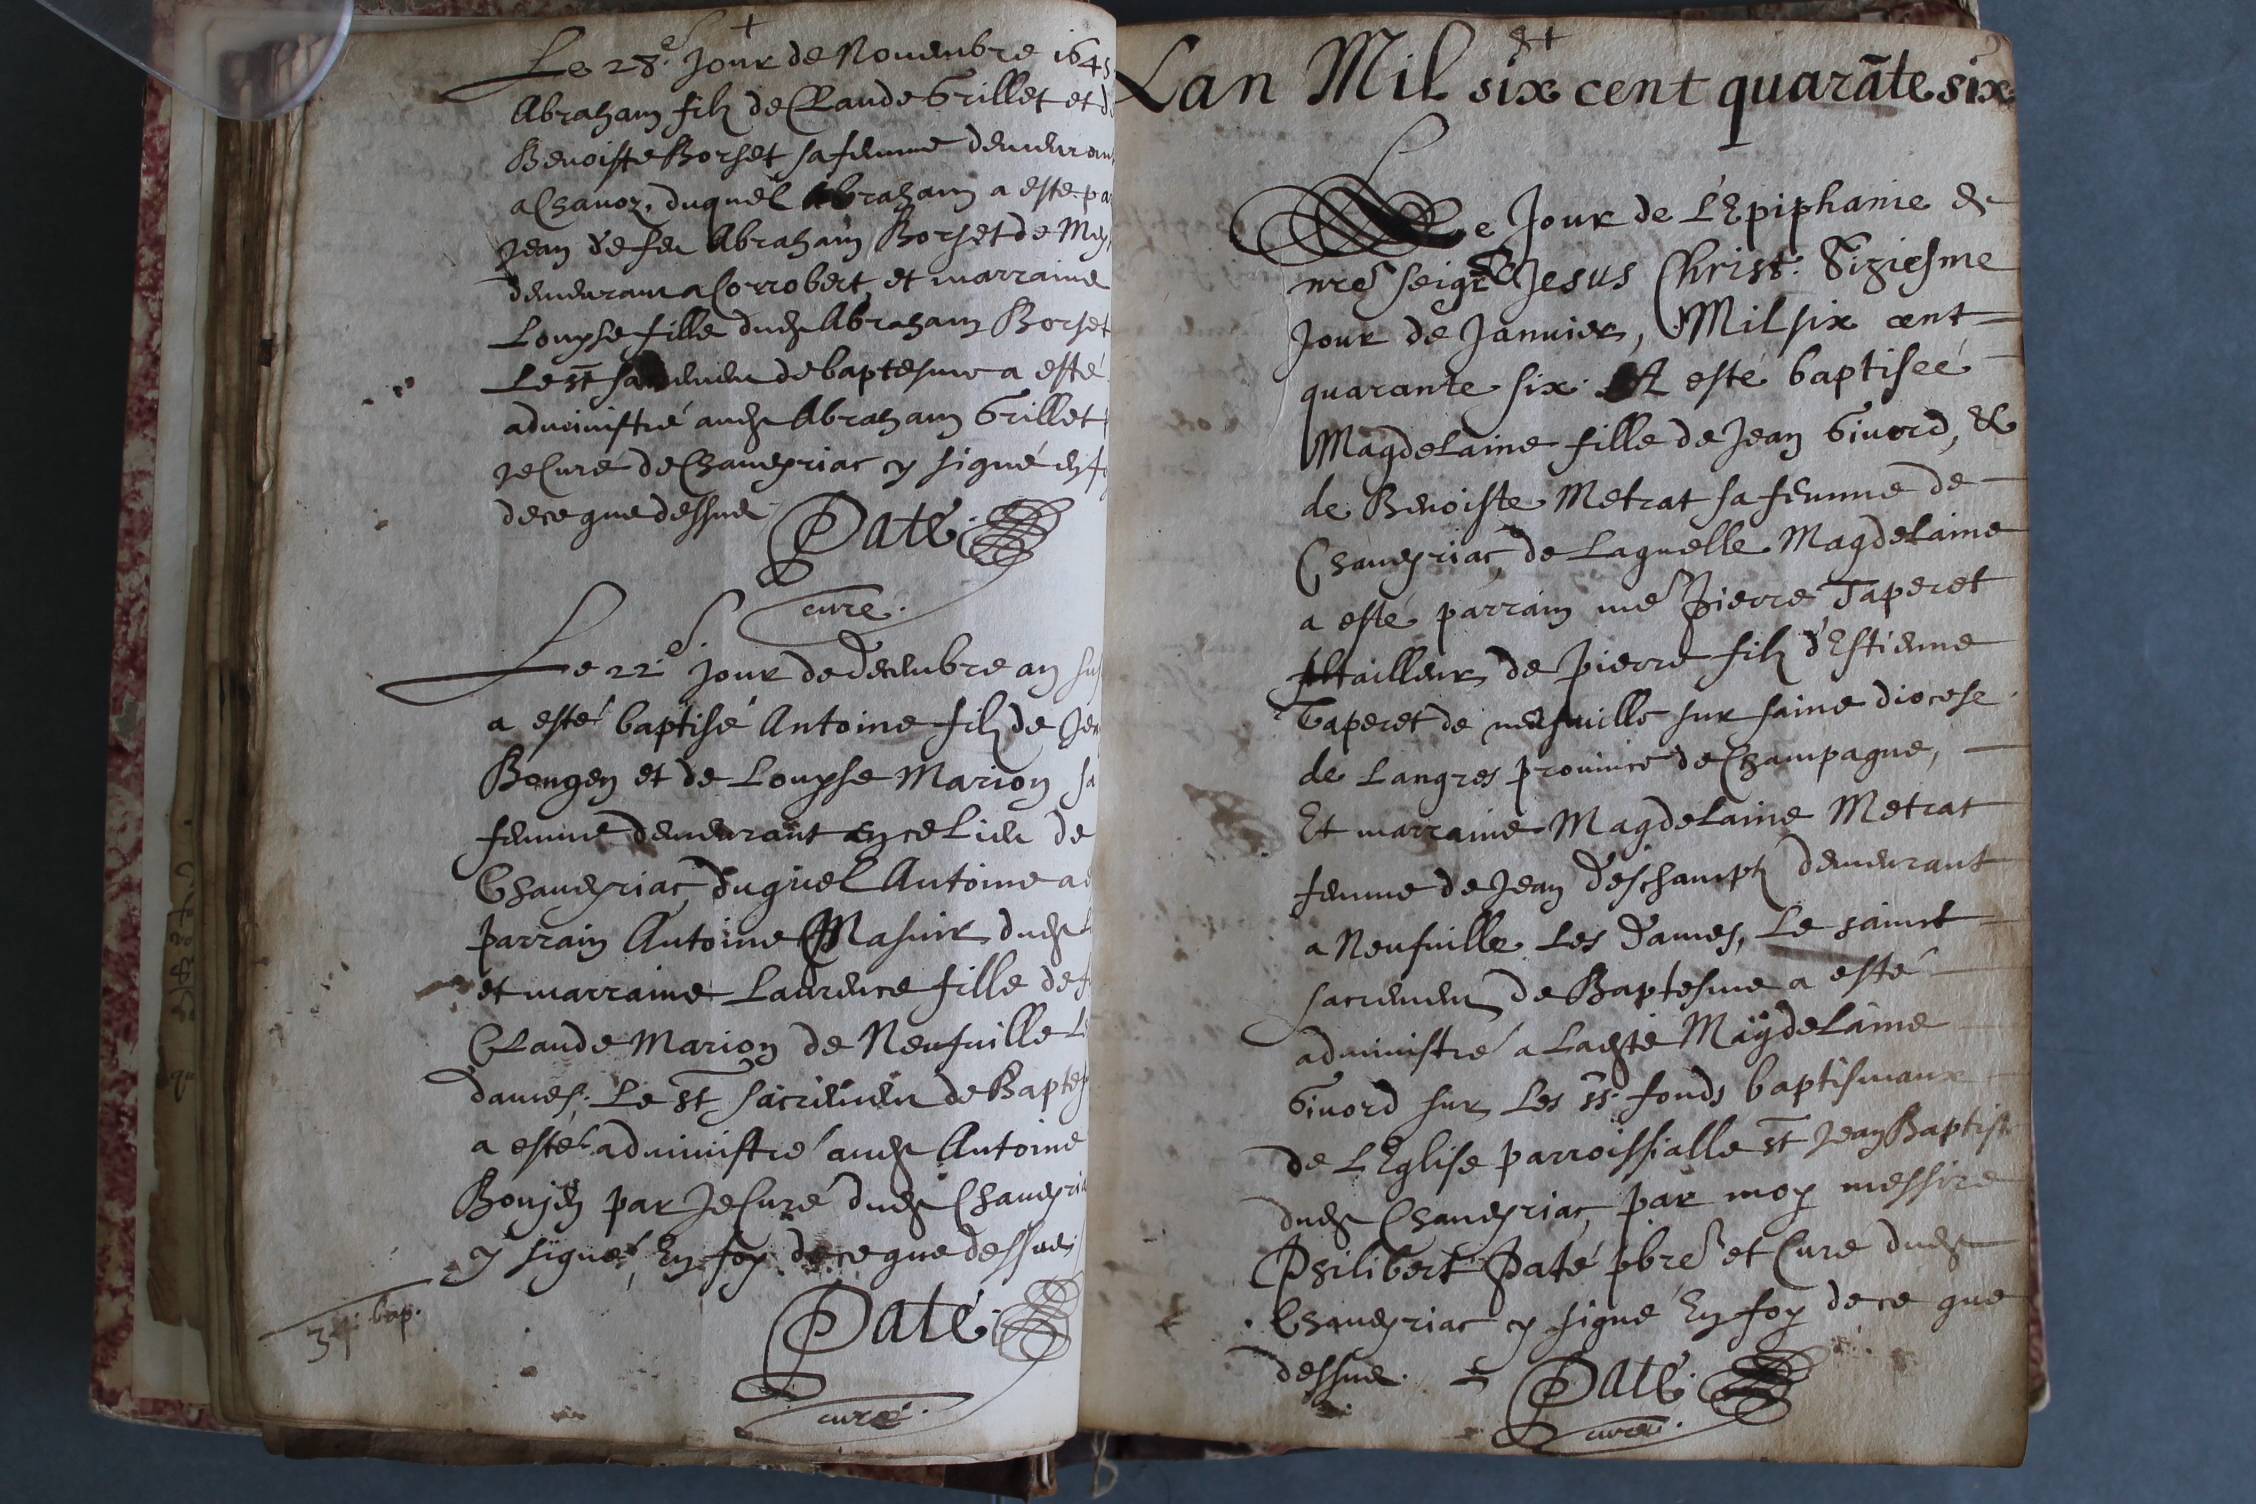 +
Le 28.e Jour de Nouembre 1645
Abraham filz de Claude Grillet et d
Benoiste Borset sa femme demeuran
a Chanoz, duquel Abraham a este pa
Jean de feu Abraham Borset de
demeurant a Corrobert et marraine
Louyse fille dudt Abraham Borset
Le st sacremen de baptesme a esté
administré audt Abraham Grillet
Je Curé de Chaueyriac y signé en fo
de ce que dessus
Paté.
curé.
Le 22.e Jour de decembre an sus
a esté baptisé Antoine filz de Jea
Bongen et de Louyse Marion sa
femme demeurant en ce Lieu de
Chaueyriac, duquel Antoine a e
parrain Antoine Masuir dudt L
et marraine Laurence fille de f
Claude Marion de Neufuille Le
dames; Le st sacremen de Baptes
a esté administré audt Antoine
Bonjen par Je Curé dudt Chaueyria
y signé, En foy de ce que dessus
Paté.
curé.
bap.
+
Lan Mil six cent quarāte six
Le Jour de L'Epiphanie de
nre seigr Jesus Christ. Siziesme
Jour de Januier, Mil six cent
quarante six. A esté baptiseé
Magdelaine fille de Jean Giuord, &
de Benoiste Metrat sa femme de
Chaueyriac, de Laquelle Magdelaine
a esté parrain me Pierre Taperet
tailleur de pierre filz d'Estienne
Taperet de neufuille sur saine diocese
de Langres prouince de Champagne,
Et marraine Magdelaine Metrat
femme de Jean deschampz demeurant
a Neufuille Les dames, Le sainct
sacremen de Baptesme a esté
administré a Ladte Magdelaine
Giuord sur Les ss. fonds baptismaux
de L'Eglise parroissialle st Jean Baptiste
dudt Chaueyriac, par moy messire
Philibert Paté pbre et Cure dudt
Chaueyriac y signé En foy de ce que
dessus. Paté.
curé.